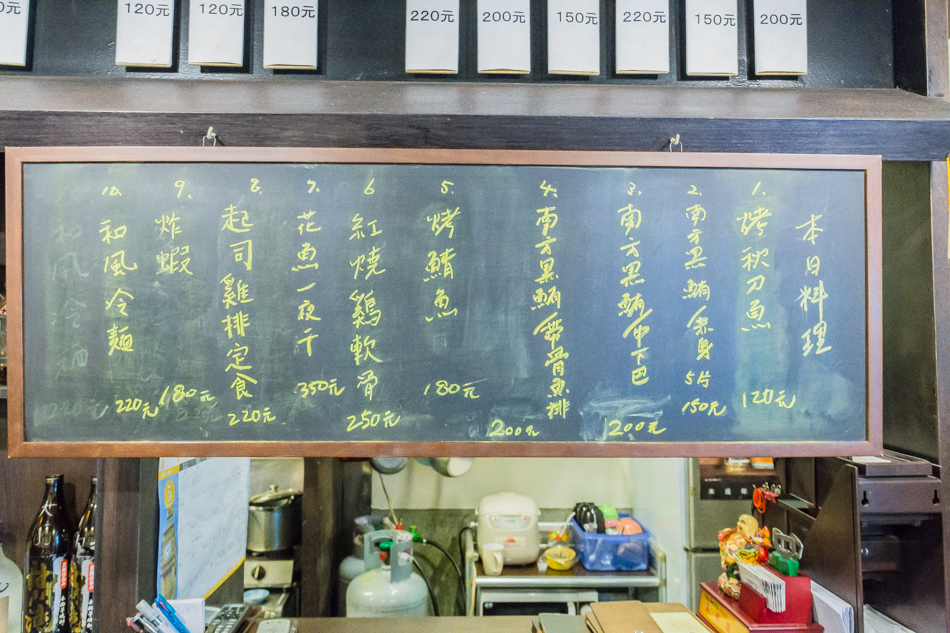 120元
120元
180元
220元
200元
150元
220元
150元
200元
本日料理
1. 烤秋刀魚 120元
2. 南方黑鮪魚身 5片 150元
3. 南方黑鮪魚下巴 200元
4. 南方黑鮪帶骨魚排 200元
5. 烤鯖魚 180元
6 紅燒鷄軟骨 250元
7. 花魚一夜干 350元
8. 起司雞排定食 220元
9. 炸蝦 180元
10. 和風冷麵 220元